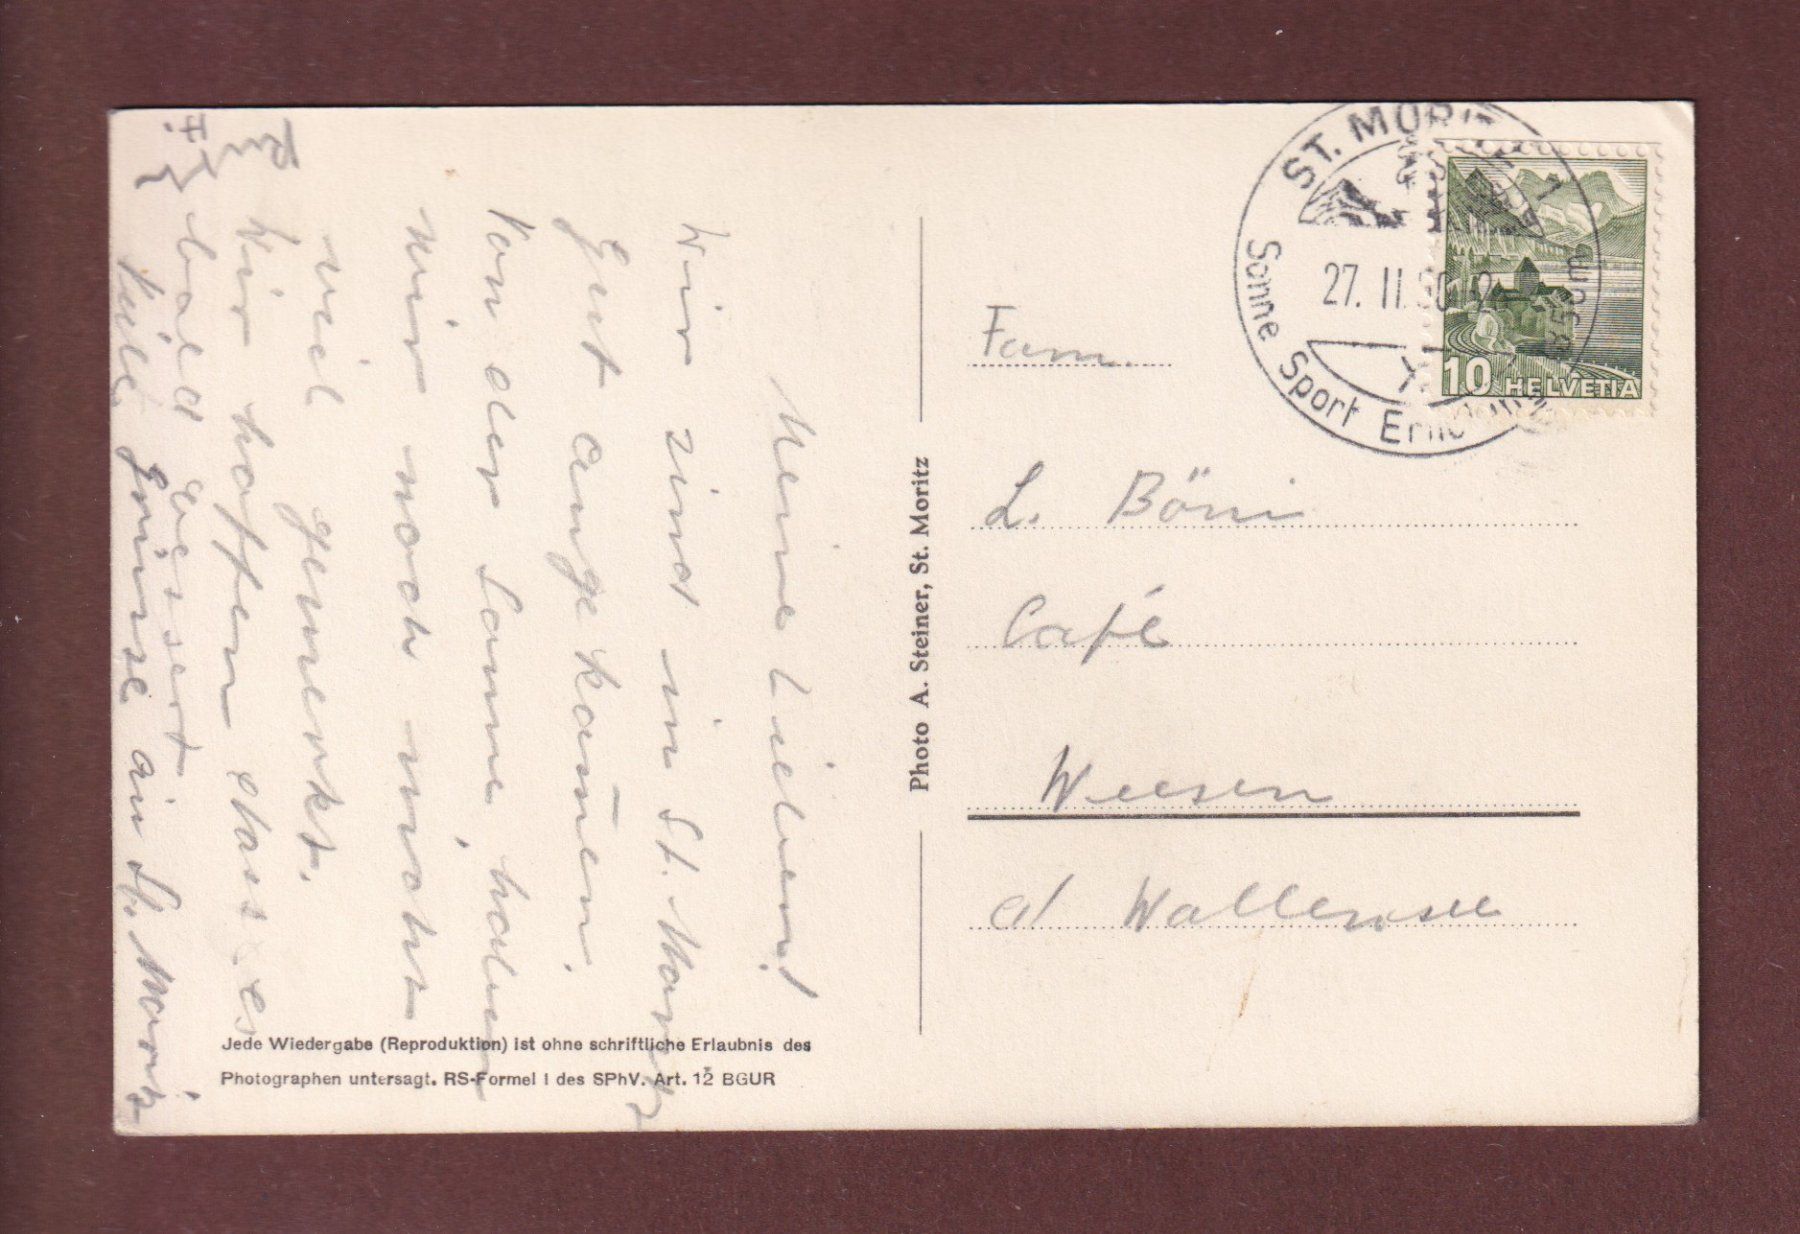 Meine Lieben!
Wir sind in St. Moritz
gut angekommen.
Von der Sonne, haben
wir noch nicht
viel gemerkt.
Wir hoffen dass es
bald bessert
Viele Grüsse aus St. Moritz
Photo A. Steiner, St. Moritz
Jede Wiedergabe (Reproduktion) ist ohne schriftliche Erlaubnis des
Photographen untersagt. RS-Formel I des SPhV. Art. 12 BGUR
ST. MORITZ 1
27. II.
1856m
Sonne Sport
10 HELVETIA
Fam.
L. Böni
Café
Weesen
a/ Wallensee